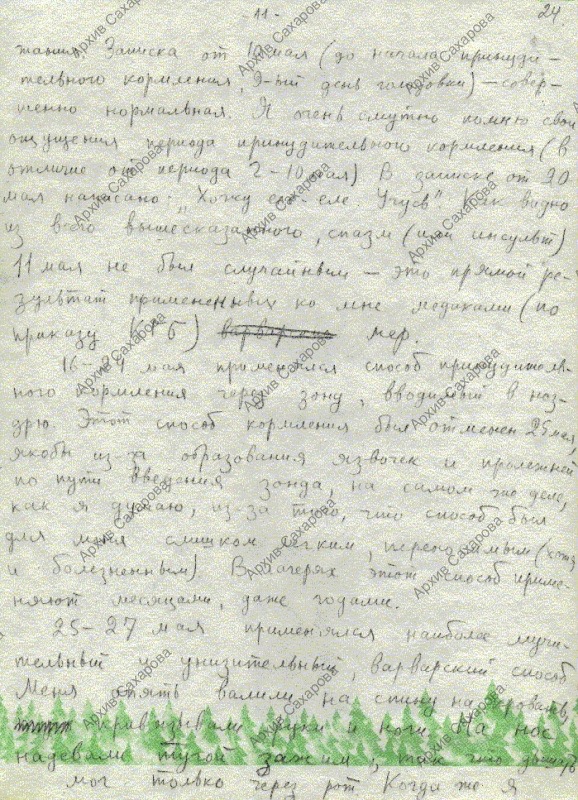 - 11 -
24.
тания. Записка от 10 мая (до начала принуди-
тельного кормления, 9-ый день голодовки) — совер-
шенно нормальная. Я очень смутно помню свои
ощущения периода принудительного кормления (в
отличие от периода 2-10 мая) В записке от 20
мая написано: "Хожу еле-еле. Учусь". Как видно
из всего вышесказанного, спазм (или инсульт)
11 мая не был случайным — это прямой ре-
зультат примененных ко мне медиками (по
приказу КГБ) варварских мер.
16-24 мая применялся способ принудитель-
ного кормления через зонд, вводимый в ноз-
дрю. Этот способ кормления был отменен 25 мая,
якобы из-за образования язвочек и пролежней
по пути введения зонда, на самом же деле,
как я думаю, из-за того, что способ был
для меня слишком легким, переносимым (хотя
и болезненным). В лагерях этот способ приме-
няют месяцами, даже годами.
25-27 мая применялся наиболее мучи-
тельный и унизительный, варварский способ
Меня опять валили на спину на кровать,
привязывали руки и ноги. На нос
надевали тугой зажим, так что дышать
мог только через рот. Когда же я
Архив Сахарова